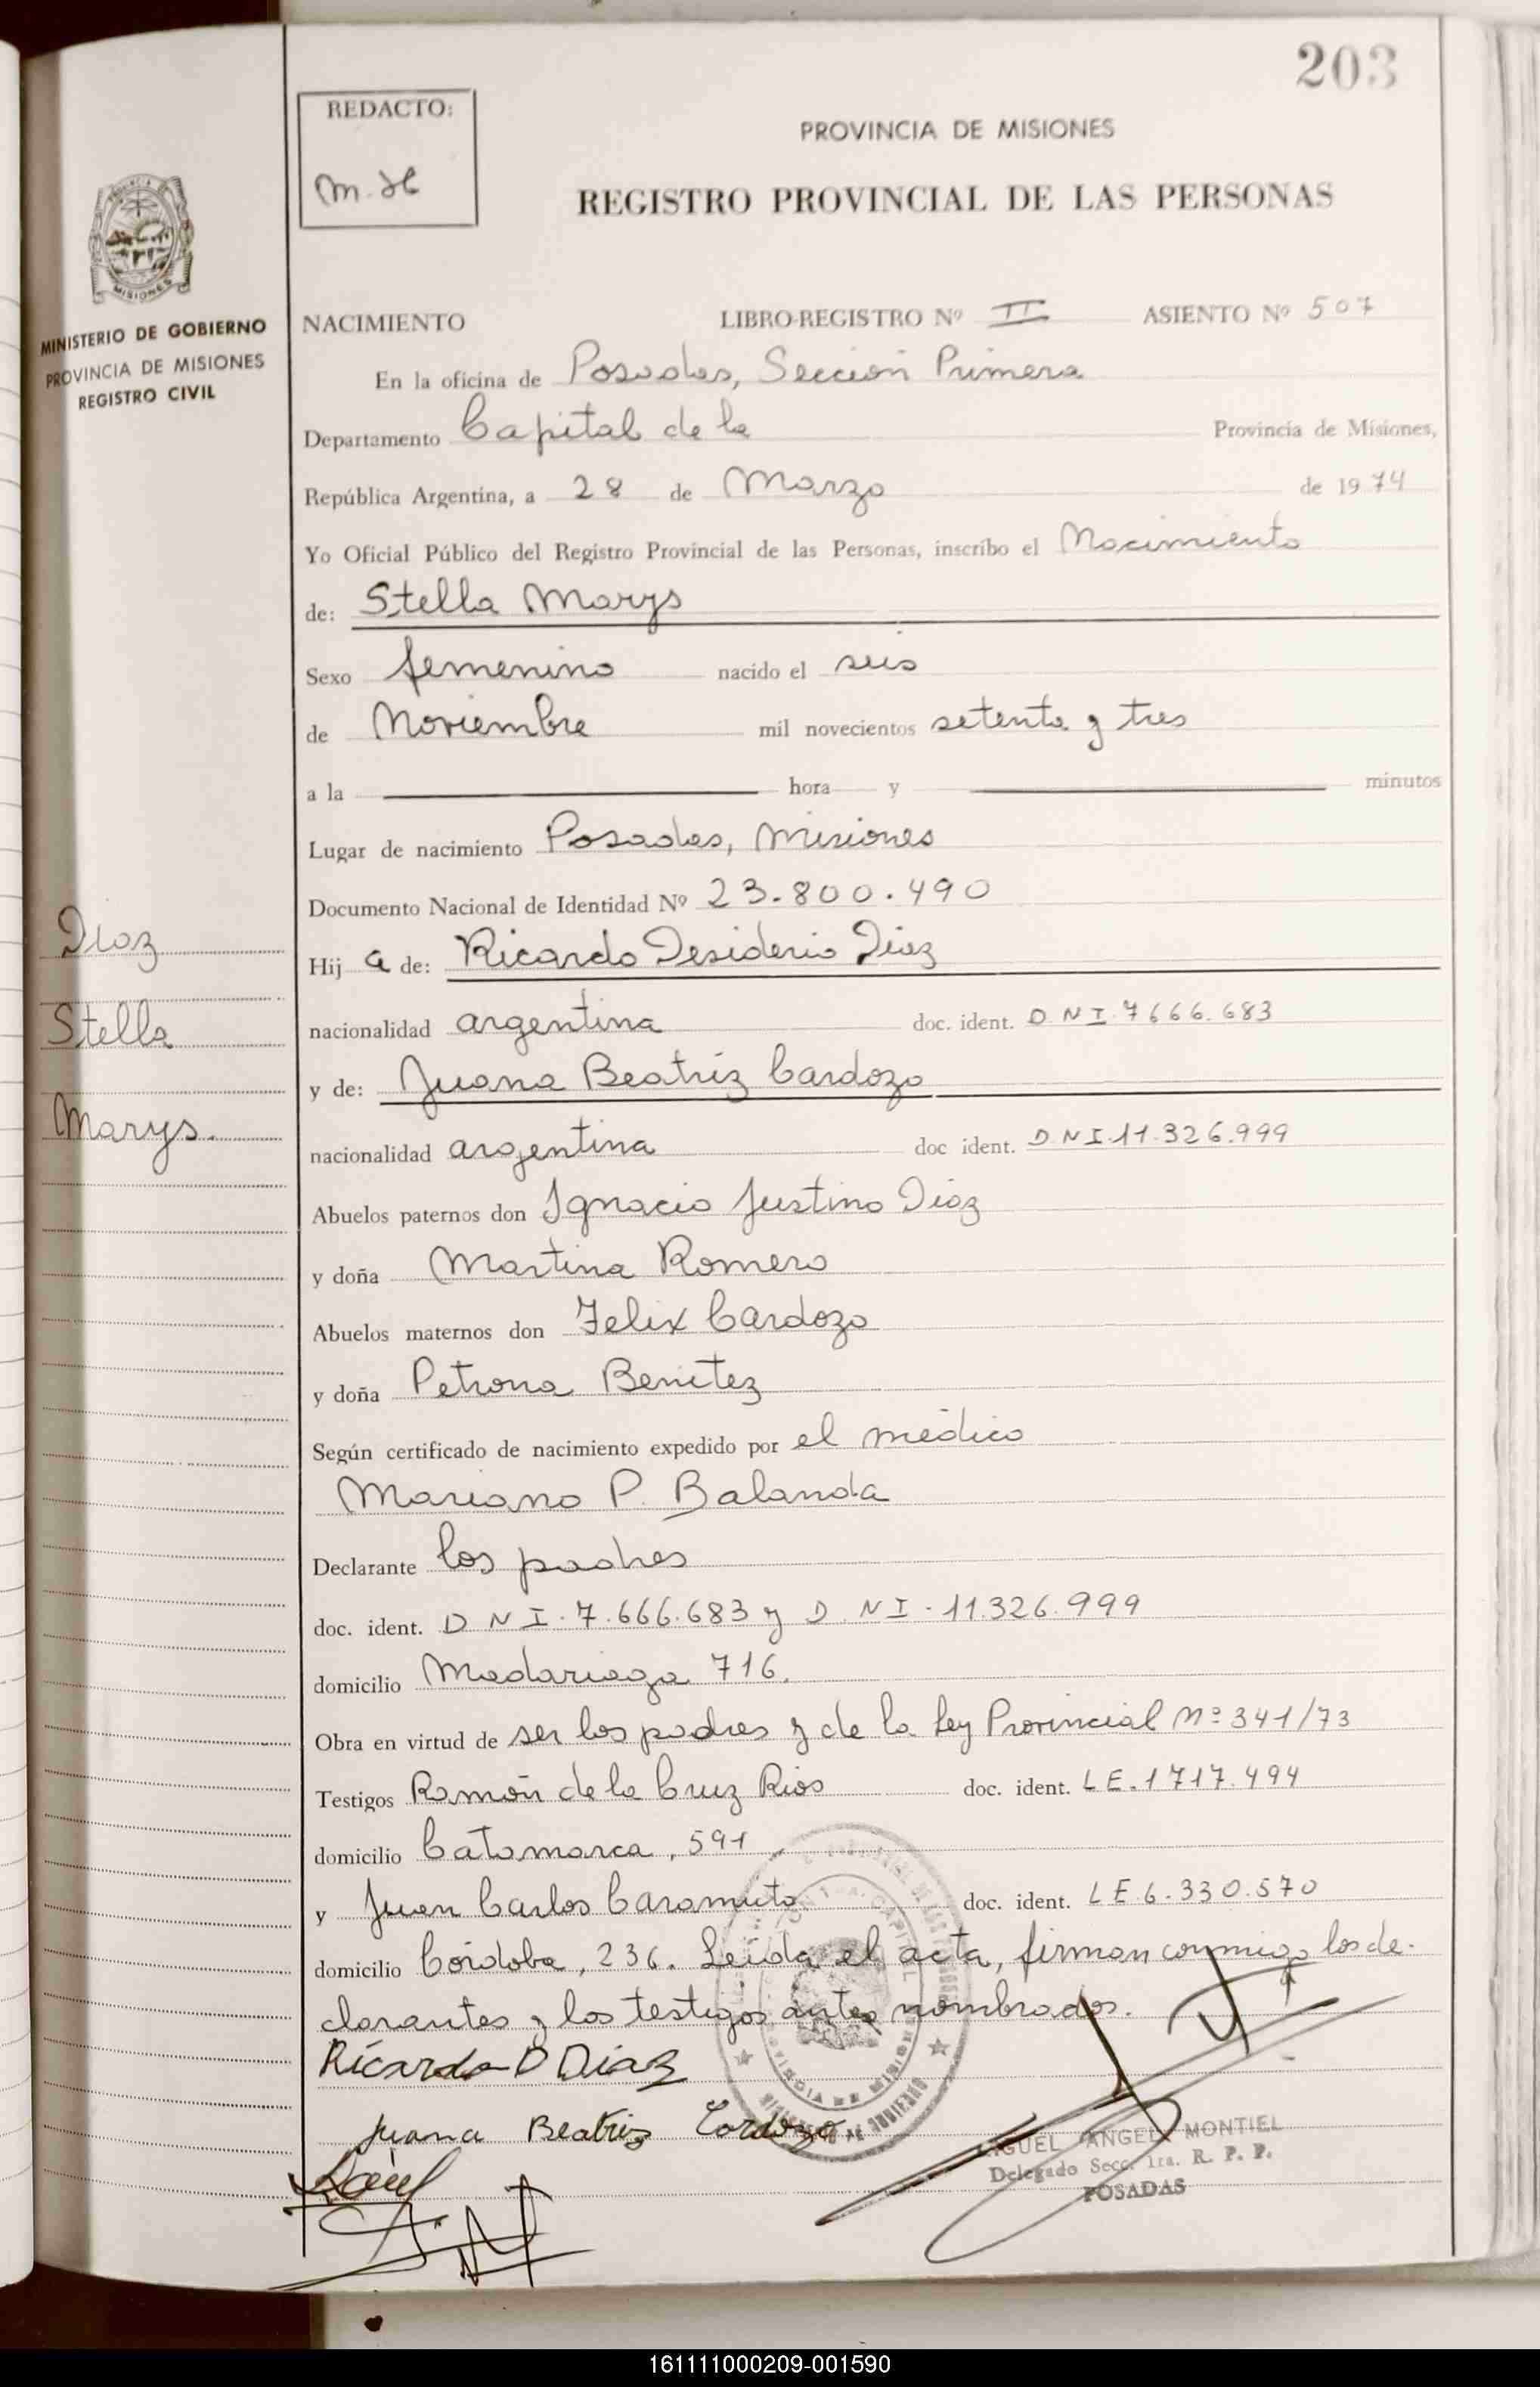 203
REDACTO:
PROVINCIA DE MISIONES
REGISTRO PROVINCIAL DE LAS PERSONAS
MISIONES
MINISTERIO DE GOBIERNO
PROVINCIA DE MISIONES
REGISTRO CIVIL
NACIMIENTO LIBRO-REGISTRO Nº II ASIENTO Nº 507
En la oficina de Posadas, Sección Primera
Departamento Capital de la Provincia de Misiones,
República Argentina, a 28 de Marzo de 1974
Yo Oficial Público del Registro Provincial de las Personas, inscribo el Nacimiento
de: Stella Marys
Sexo femenino nacido el seis
de Noviembre mil novecientos setenta y tres
a la hora y minutos
Lugar de nacimiento Posadas, Misiones
Documento Nacional de Identidad Nº 23.800.490
Diaz
Stella
Marys.
Hija de: Ricardo Desiderio Diaz
nacionalidad argentina doc. ident. D N I. 7666.683
y de: Juana Beatriz Cardozo
nacionalidad argentina doc ident. D N I. 11.326.999
Abuelos paternos don Ignacio Justino Diaz
y doña Martina Romero
Abuelos maternos don Felix Cardozo
y doña Petrona Benitez
Según certificado de nacimiento expedido por el médico
Mariano P. Balanda
Declarante los padres
doc. ident. D N I. 7.666.683 y D. N I. 11.326.999
domicilio Madariaga 716.
Obra en virtud de ser los padres y de la Ley Provincial Nº 341/73
Testigos Ramón de la Cruz Rios doc. ident. L E. 1717.494
domicilio Catamarca, 591
y Juan Carlos Caramuto doc. ident. L E 6.330.570
domicilio Córdoba, 236. Leida el acta, firman conmigo los de-
clarantes y los testigos antes nombrados.
Ricardo D Diaz
Juana Beatriz Cardozo
MIGUEL ANGEL MONTIEL
Delegado Secc. 1ra. R. P. P.
POSADAS
161111000209-001590